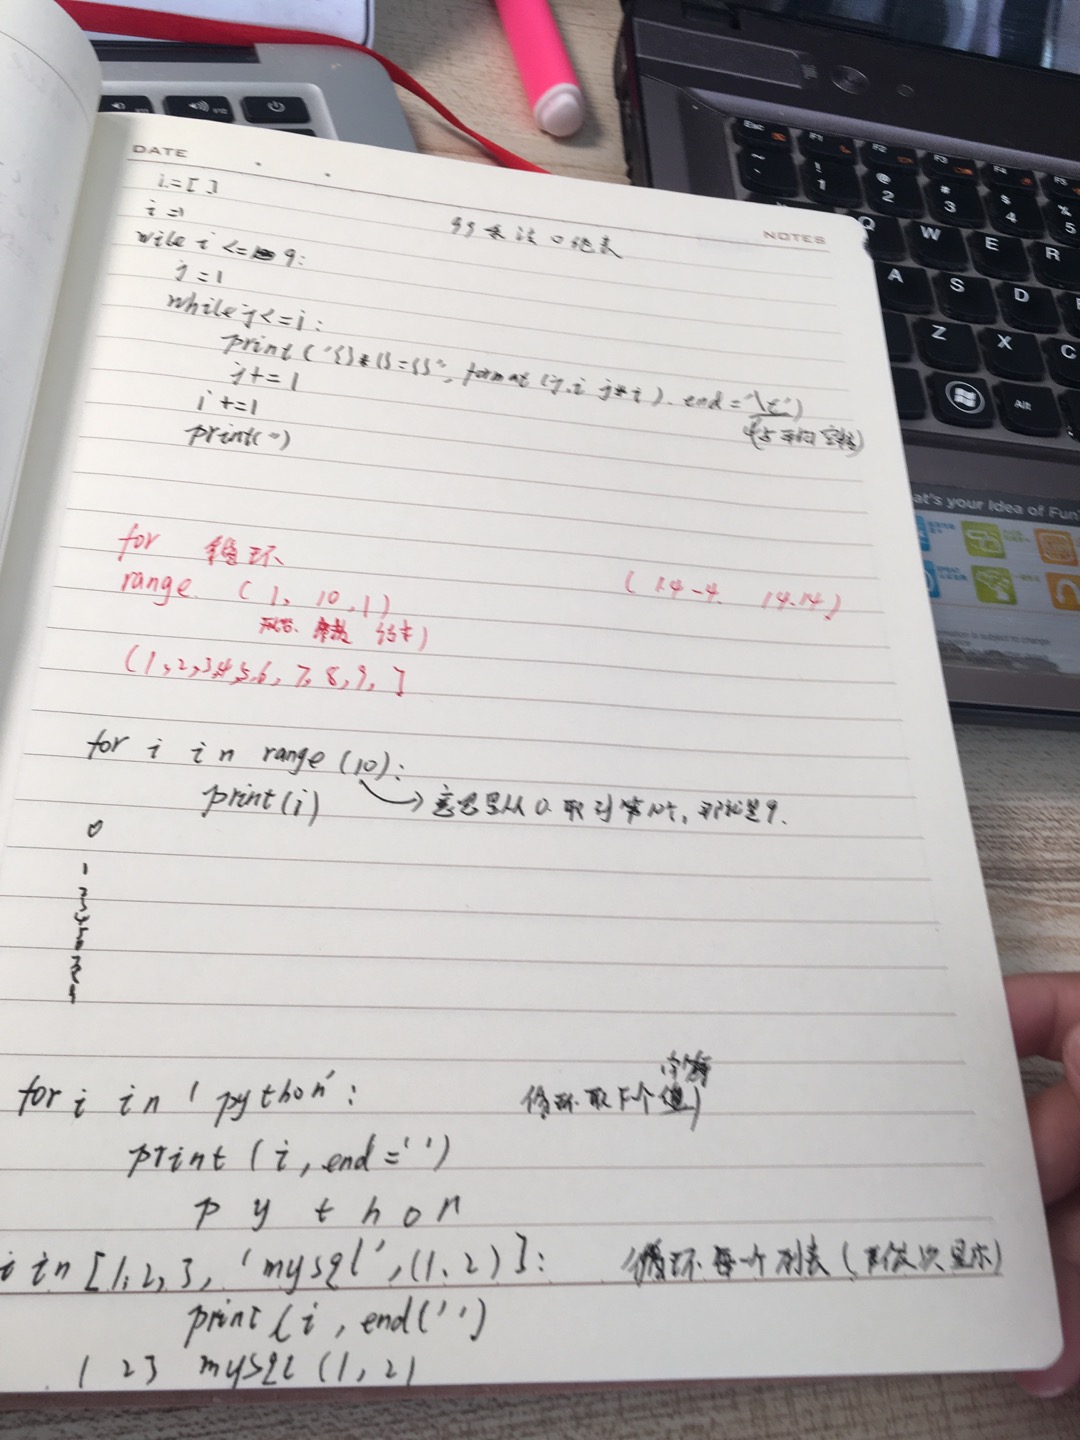 DATE
NOTES
i=[]
i=1
99乘法口诀表
wile i <= 9:
j=1
while j<=i:
print('{}*{}={}'. format(j.i j*i). end='\t')
j+=1
i+=1
print('')
for 循环
range (1, 10,1)
(1.4-4. 14.14)
(1,2,3,4,5,6,7,8,9,]
for i in range (10):
print(i)
意思是从0.取到第10个,那就是9.
0
1
2
3
4
5
6
7
8
9
for i in 'python':
循环取下个值)
字符
print(i,end='')
p y t h o n
i in [1,2,3,'mysql',(1.2)]:
循环每一个列表(依次显示)
print(i,end('')
1 2 3 mysql (1,2)
Esc F1 F2 F3 F4 F5
~ ! 1 @ 2 # 3 $ 4 % 5
Q W E R
A S D
Z X C
Alt
at's your Idea of Fun?